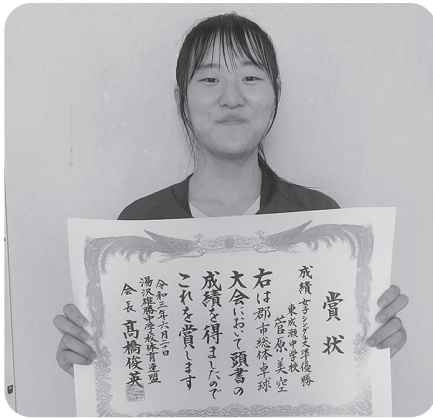 賞状
成績 女子シングルス準優勝
東成瀬中学校
菅原美空
右は郡市総体卓球
大会において頭書の
成績を得ましたので
これを賞します
令和三年六月二十日
湯沢雄勝中学校体育連盟
会長 高橋俊英